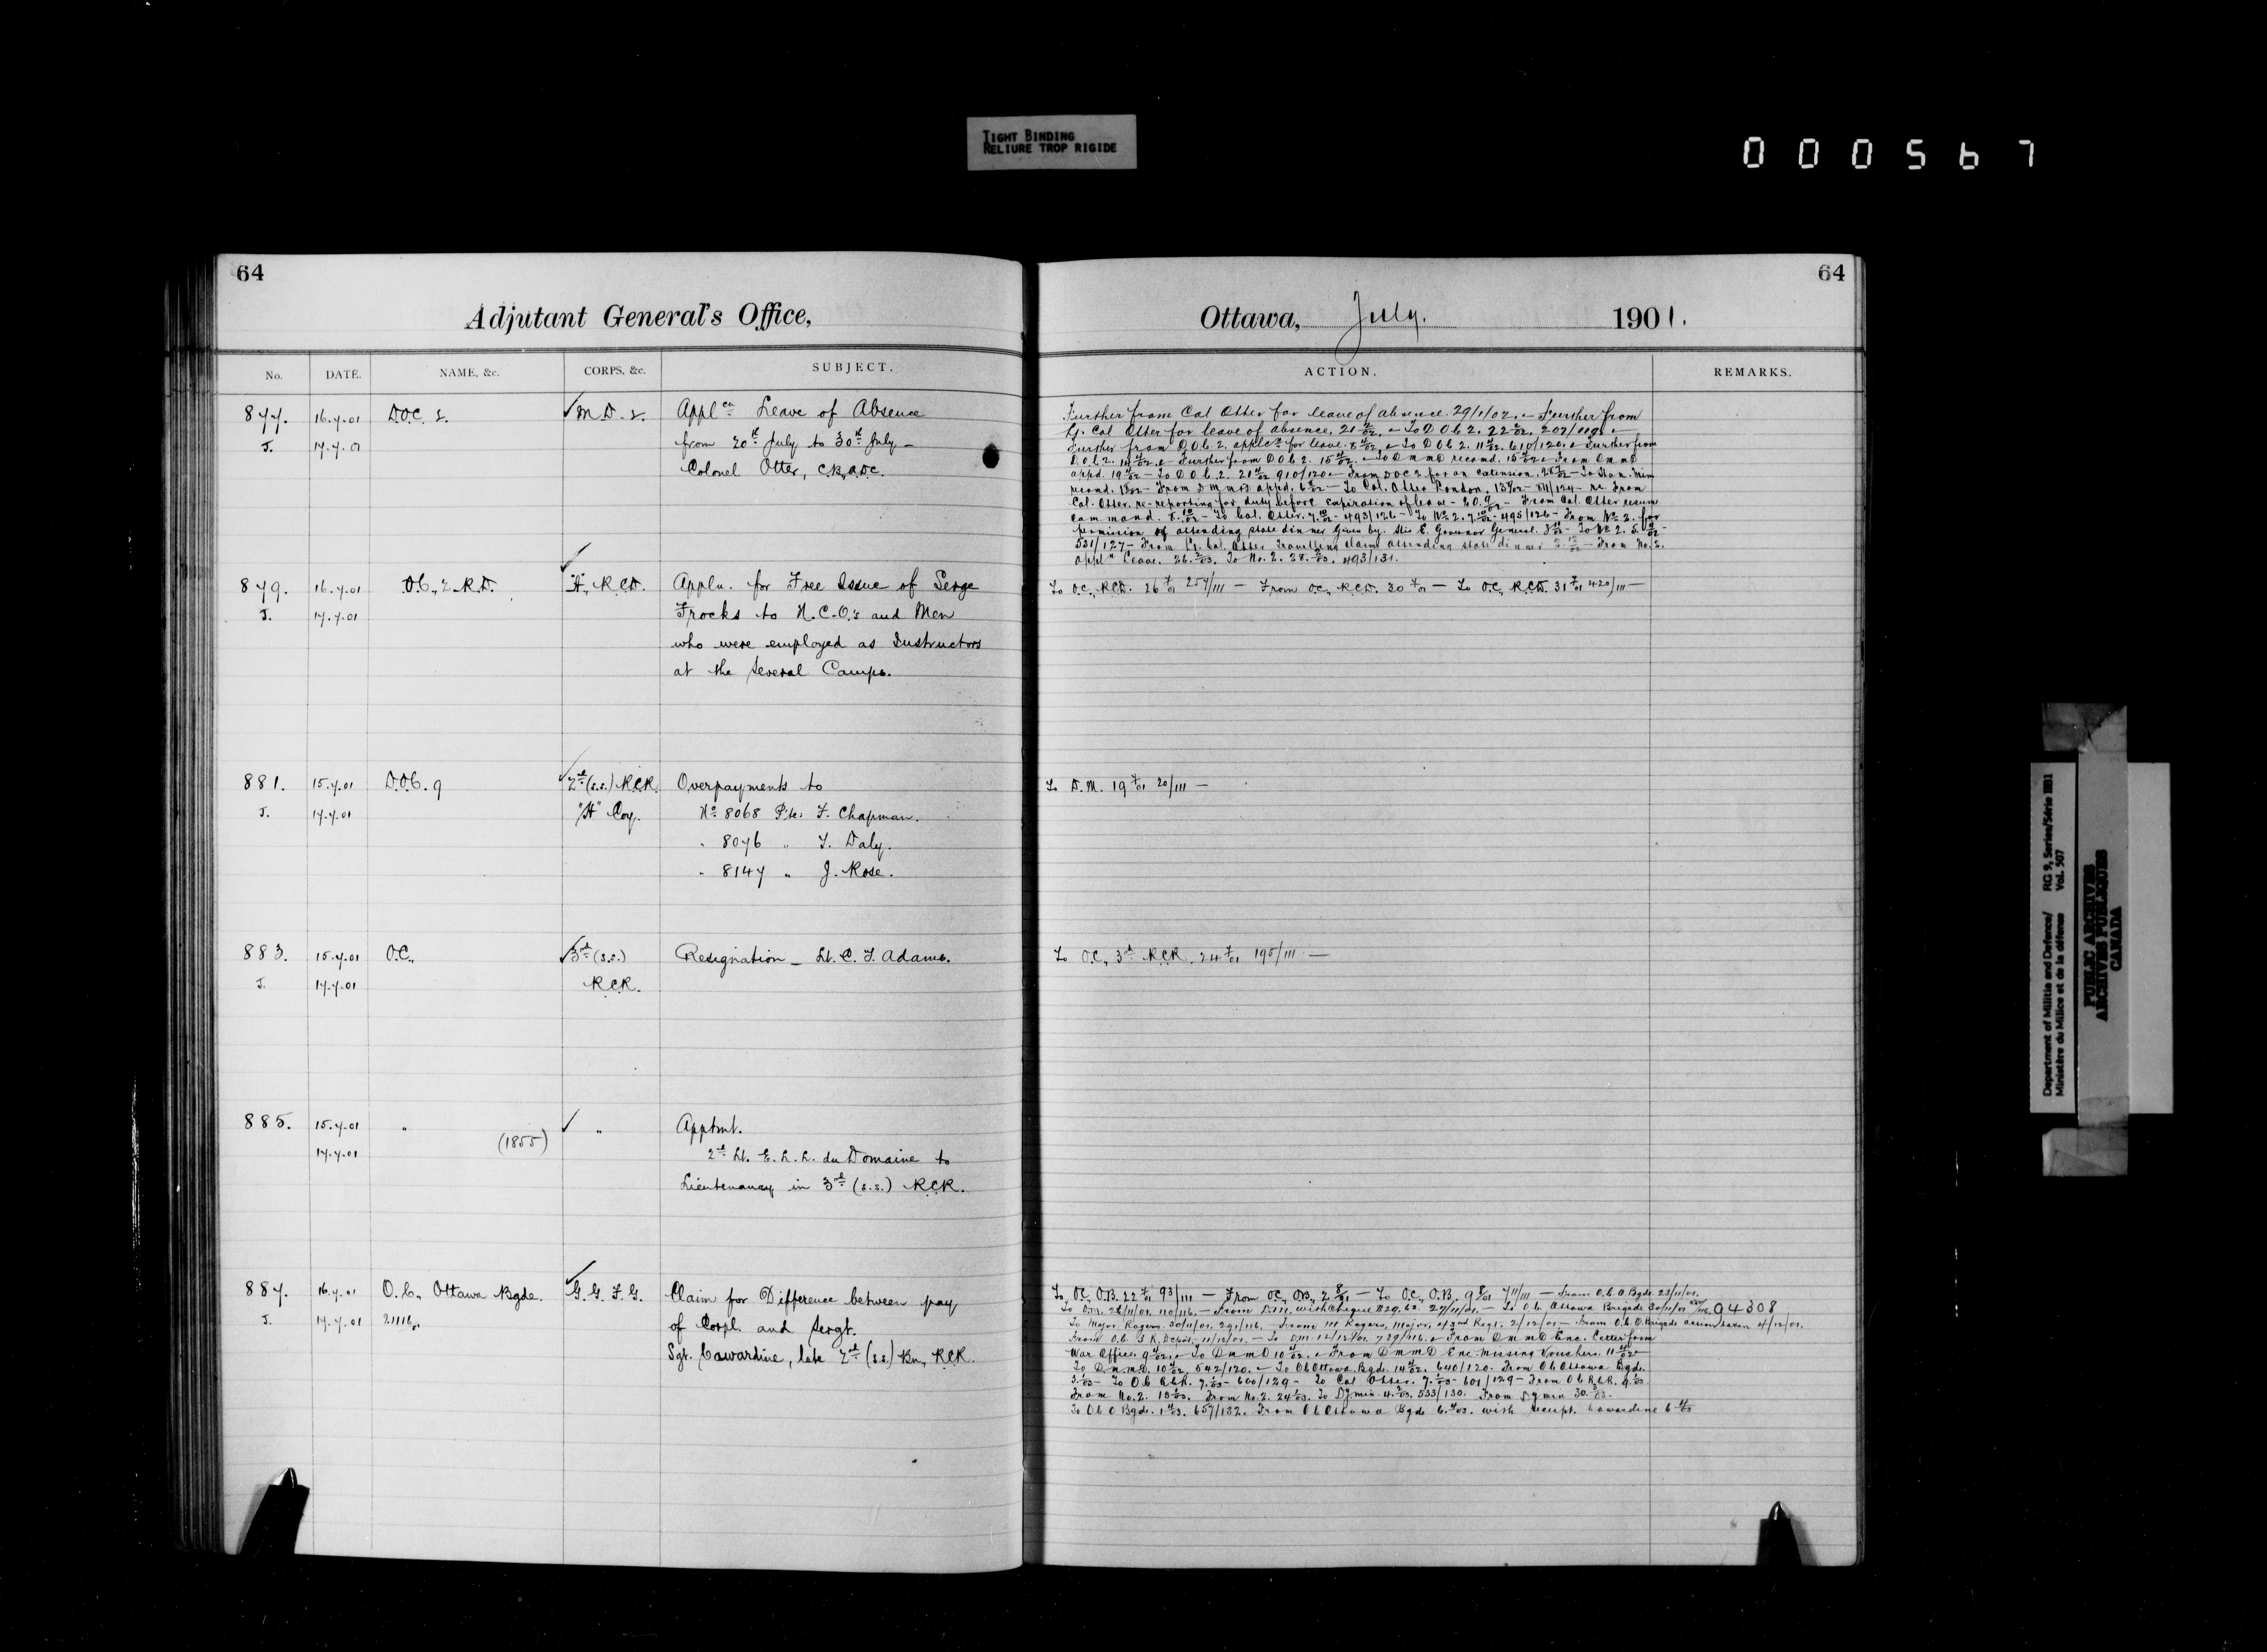 TIGHT BINDING
RELIURE TROP RIGIDE
000567
64
Adjutant General's Office,
No. DATE. NAME, &c. CORPS, &c. SUBJECT.
877. 16.7.01 D.O.C. 2. ✓ M.D. 2. Applcn Leave of Absence
J. 17.7.01 from 20th July to 30th July –
Colonel Otter, C.B., A.D.C.
✓
879. 16.7.01 O.C., 2 R.D. "A", R.C.D. Appln. for Free Issue of Serge
J. 17.7.01 Frocks to N.C.O.'s and Men
who were employed as Instructors
at the several Camps.
881. 15.7.01 D.O.C. 9 ✓ 2nd (s.s.) R.C.R. Overpayments to
J. 17.7.01 "H" Coy. No 8068 Pte. F. Chapman.
" 8076 " T. Daly.
" 8147 " J. Rose.
883. 15.7.01 O.C., ✓ 3rd (s.s.) Resignation – Lt. C. F. Adams.
J. 17.7.01 R.C.R.
885. 15.7.01 " ✓ " Apptmt.
17.7.01 (1855) 2nd Lt. E. L. L. du Domaine to
Lieutenancy in 3rd (s.s.) R.C.R.
887. 16.7.01 O.C., Ottawa Bgde. ✓ G.G.F.G. Claim for Difference between pay
J. 17.7.01 21116. of Corpl. and Sergt.
Sgt. Cawardine, late 2nd (s.s.) Bn, R.C.R.
64
Ottawa, July. 1901.
ACTION. REMARKS.
Further from Col Otter for leave of absence. 29/1/02. – Further from
Lt. Col Otter for leave of absence, 21 2/02. – To D O C 2. 22 2/02. 207/119. –
Further from D.O.C. 2. applcn for leave. 8 4/02. – To D O C 2. 11 4/02. 610/120. – Further from
D.O.C. 2. 14 4/02. – Further from D O C 2. 15 4/02. – To D M M D recomd. 15 4/02. – From D M M D
appd. 19 4/02 – To D O C 2. 21 4/02 910/120. – From D O C 2 for an extension. – To Hon. Min
recomd. – From D M M D appd. – To Col. Otter London. – 124 – re. From
Col. Otter. re-reporting for duty before expiration of leave – From Col. Otter resum
command. 8. 10/02 – To Col. Otter. 7. 10/02 – 493/126 – To No 2. 7. 10/02 – 495/126 – From No 2. for
permission of attending state dinner given by. His E. Governor General. – To No 2. 5.
531/127 – From Lt. Col. Otter travelling claim attending state dinner – From No. 2.
appln Leave. 26. 2/03. To No. 2. 28. 2/03. 493/131.
To O.C., R.C.D. 26 7/01 257/111 – From O.C., R.C.D. 30 7/01 – To O.C., R.C.D. 31 7/01 420/111 –
To D.M. 19 7/01 20/111 –
To O.C., 3rd R.C.R. 24 7/01 195/111 –
To O.C. O.B. 22 7/01 93/111 – From O.C., O.B., 2 8/01 – To O.C., O.B. 9 8/01 711/111 – From O.C. O Bgde. 23/11/01.
To D.M. 28/11/01. 110/116. – From D.M. with Cheque $29.62. 29/11/01. – To O.C. Ottawa Brigade 30/11/01 04308
To Major. Rogers. 30/11/01. 291/116. – From M Rogers, Major, 43rd Regt. 2/12/01 – From O.C. O. Brigade action taken 4/12/01.
From O.C. S.R. Depot, 11/12/01. – To D.M. 12/12/01. 739/116. – From D M M D Enc. Letter from
War Office. 9 4/02. – To D M M D 10 4/02. – From D M M D Enc. Missing Vouchers. 11 4/02 –
To D.M.M.D. 10 4/02. 542/120. – To O C Ottawa. Bgde. 14 4/02. 640/120. From O C Ottawa Bgde.
3. 1/03 – To O C R.C.R. 7. 1/03 – 600/129 – To Col Otter. 7. 1/03 – 601/129 – From O C R.C.R. 9. 1/03.
From No. 2. 19 1/03. From No. 2. 24 1/03. To Dy min. 4. 2/03. 533/130. From Dy min 30. 3/03.
To O C O Bgde. 1 4/03. 657/132. From O C Ottawa Bgde 6. 4/03. with receipt. Cawardine 6 4/03
Department of Militia and Defence/
Ministère du Milice et de la défense
RG 9, Series/Série IIB1
Vol. 507
PUBLIC ARCHIVES
ARCHIVES PUBLIQUES
CANADA